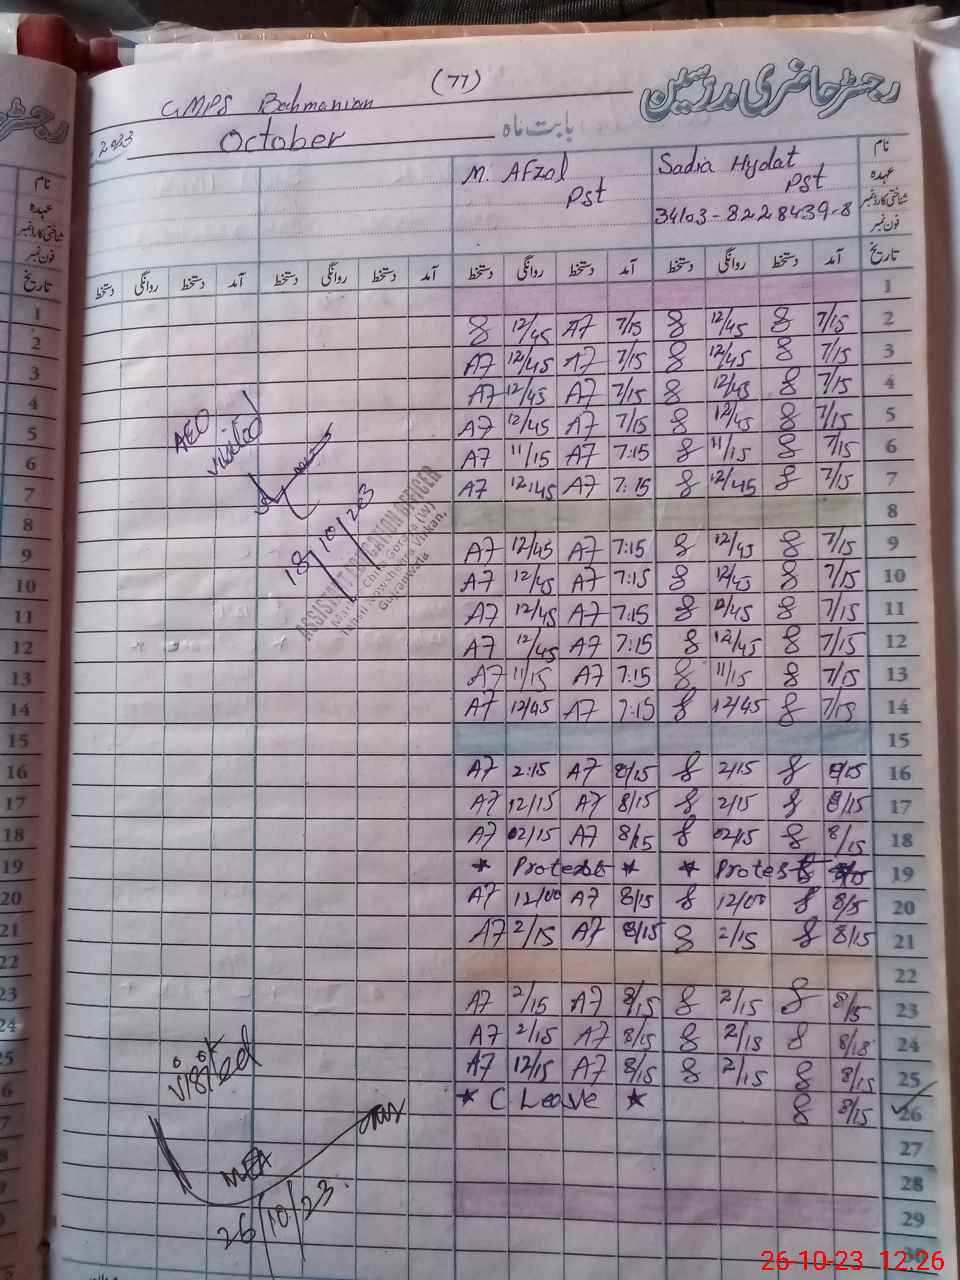 (77)
رجسٹر حاضری مدرسین
GMPS Bahmanian
2023 October بابت ماہ
نام Sadia Hydat M. Afzal
عہدہ Pst Pst
شناختی کارڈ نمبر 34103-8228439-8
فون نمبر
تاریخ آمد دستخط روانگی دستخط آمد دستخط روانگی دستخط آمد دستخط روانگی دستخط آمد دستخط روانگی دستخط
1
8 12/45 A7 7/15 8 12/45 8 7/15 2
A7 12/45 A7 7/15 8 12/45 8 7/15 3
A7 12/45 A7 7/15 8 12/45 8 7/15 4
A7 12/45 A7 7/15 8 12/45 8 7/15 5
A7 11/15 A7 7:15 8 11/15 8 7/15 6
A7 12:45 A7 7:15 8 12/45 8 7/15 7
8
A7 12/45 A7 7:15 8 12/45 8 7/15 9
A7 12/45 A7 7:15 8 12/45 8 7/15 10
A7 12/45 A7 7:15 8 12/45 8 7/15 11
A7 12/45 A7 7:15 8 12/45 8 7/15 12
A7 11/15 A7 7:15 8 11/15 8 7/15 13
A7 12/45 A7 7:15 8 12/45 8 7/15 14
15
A7 2:15 A7 8/15 8 2/15 8 8/15 16
A7 12/15 A7 8/15 8 2/15 8 8/15 17
A7 02/15 A7 8/15 8 02/15 8 8/15 18
* Protest * * Protest 19
A7 12/00 A7 8/15 8 12/00 8 8/15 20
A7 2/15 A7 8/15 8 2/15 8 8/15 21
22
A7 2/15 A7 8/15 8 2/15 8 8/15 23
A7 2/15 A7 8/15 8 2/15 8 8/15 24
A7 12/15 A7 8/15 8 2/15 8 8/15 25
* C Leave * 8 8/15 26
27
28
29
30
AEO
visited
18/10/203
ASSISTANT EDUCATION OFFICER
Gujranwala
visited
MEA
26/10/23
رجسٹر
نام
عہدہ
شناختی کارڈ نمبر
فون نمبر
تاریخ
1
2
3
4
5
6
7
8
9
10
11
12
13
14
15
16
17
18
19
20
21
22
23
24
25
26-10-23 12:26